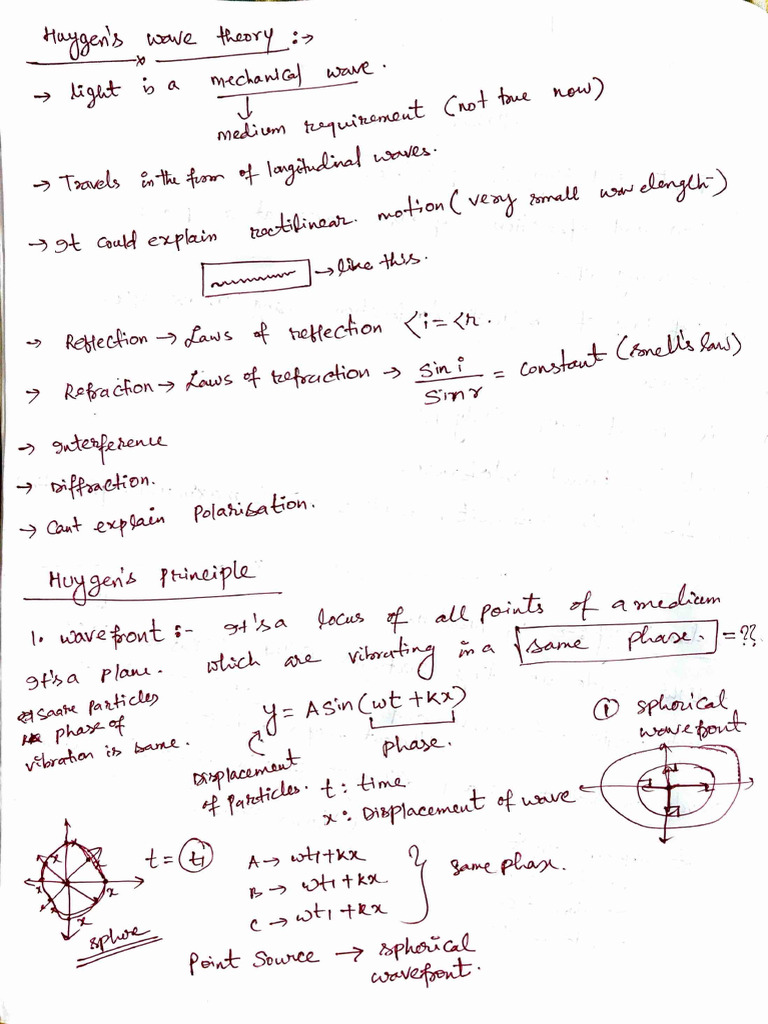 Huygen's wave theory :→
→ light is a mechanical wave.
↓
medium requirement (not true now)
→ Travels in the form of longitudinal waves.
→ It could explain rectilinear. motion (very small wavelength)
→ like this.
→ Reflection → Laws of reflection <i = <r.
→ Refraction → Laws of refraction → sin i / sin r = constant (snell's law)
→ Interference
→ Diffraction.
→ Cant explain Polarisation.
Huygen's Principle
1. wavefront :- It's a locus of all points of a medium
It's a plane. which are vibrating in a same phase. = ??
particles
phase of
vibration is same.
y = A sin (wt + kx)
phase.
Displacement
of particles.
t : time
x : Displacement of wave
① spherical
wavefront
t = t1
A → wt1 + kx
B → wt1 + kx
C → wt1 + kx
same phase.
x x x x x x
sphere
Point Source → spherical
wavefront.